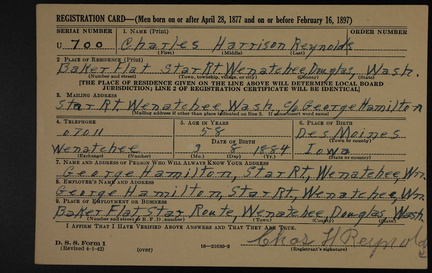 REGISTRATION CARD—(Men born on or after April 28, 1877 and on or before February 16, 1897)
SERIAL NUMBER 1. NAME (Print) ORDER NUMBER
U 700 Charles Harrison Reynolds
(First) (Middle) (Last)
2. PLACE OF RESIDENCE (Print)
Baker Flat Star Rt Wenatchee, Douglas, Wash.
(Number and street) (Town, township, village, or city) (County) (State)
[THE PLACE OF RESIDENCE GIVEN ON THE LINE ABOVE WILL DETERMINE LOCAL BOARD
JURISDICTION; LINE 2 OF REGISTRATION CERTIFICATE WILL BE IDENTICAL]
3. MAILING ADDRESS
Star Rt Wenatchee, Wash. c/o George Hamilton
[Mailing address if other than place indicated on line 2. If same insert word same]
4. TELEPHONE 5. AGE IN YEARS 6. PLACE OF BIRTH
07011 58 Des Moines
DATE OF BIRTH (Town or county)
Wenatchee 3 8 1884 Iowa
(Exchange) (Number) (Mo.) (Day) (Yr.) (State or country)
7. NAME AND ADDRESS OF PERSON WHO WILL ALWAYS KNOW YOUR ADDRESS
George Hamilton, Star Rt, Wenatchee, Wn.
8. EMPLOYER'S NAME AND ADDRESS
George Hamilton, Star Rt, Wenatchee, Wn.
9. PLACE OF EMPLOYMENT OR BUSINESS
Baker Flat Star Route, Wenatchee, Douglas, Wash.
(Number and street or R. F. D. number) (Town) (County) (State)
I AFFIRM THAT I HAVE VERIFIED ABOVE ANSWERS AND THAT THEY ARE TRUE.
D. S. S. Form 1
(Revised 4-1-42) (over) Chas H Reynolds
(Registrant's signature)